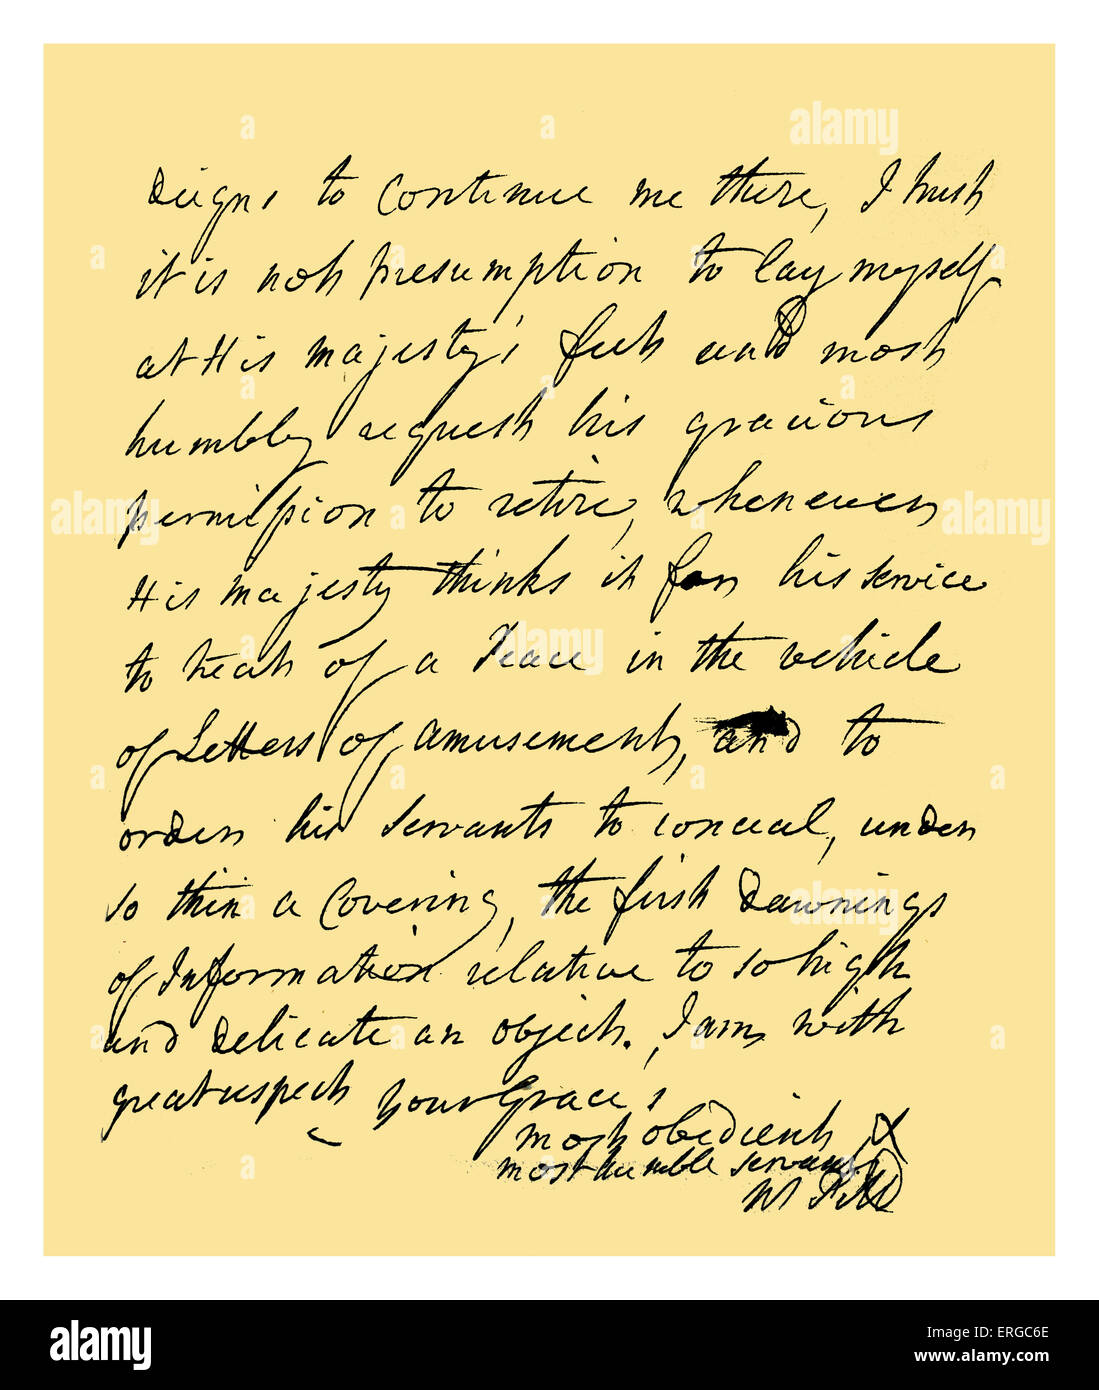 Deigns to continue me there, I trust
it is not presumption to lay myself
at His majesty's feet and most
humbly request his gracious
permission to retire, whenever
His majesty thinks it for his service
to treat of a Peace in the vehicle
of Letters of amusement, and to
order his servants to conceal, under
so thin a Covering, the first Dawnings
of Information relative to so high
and Delicate an object. I am, with
great respect your Grace's
most obedient &
most humble servant
W Pitt
alamy
alamy stock photo
ERGC6E
www.alamy.com